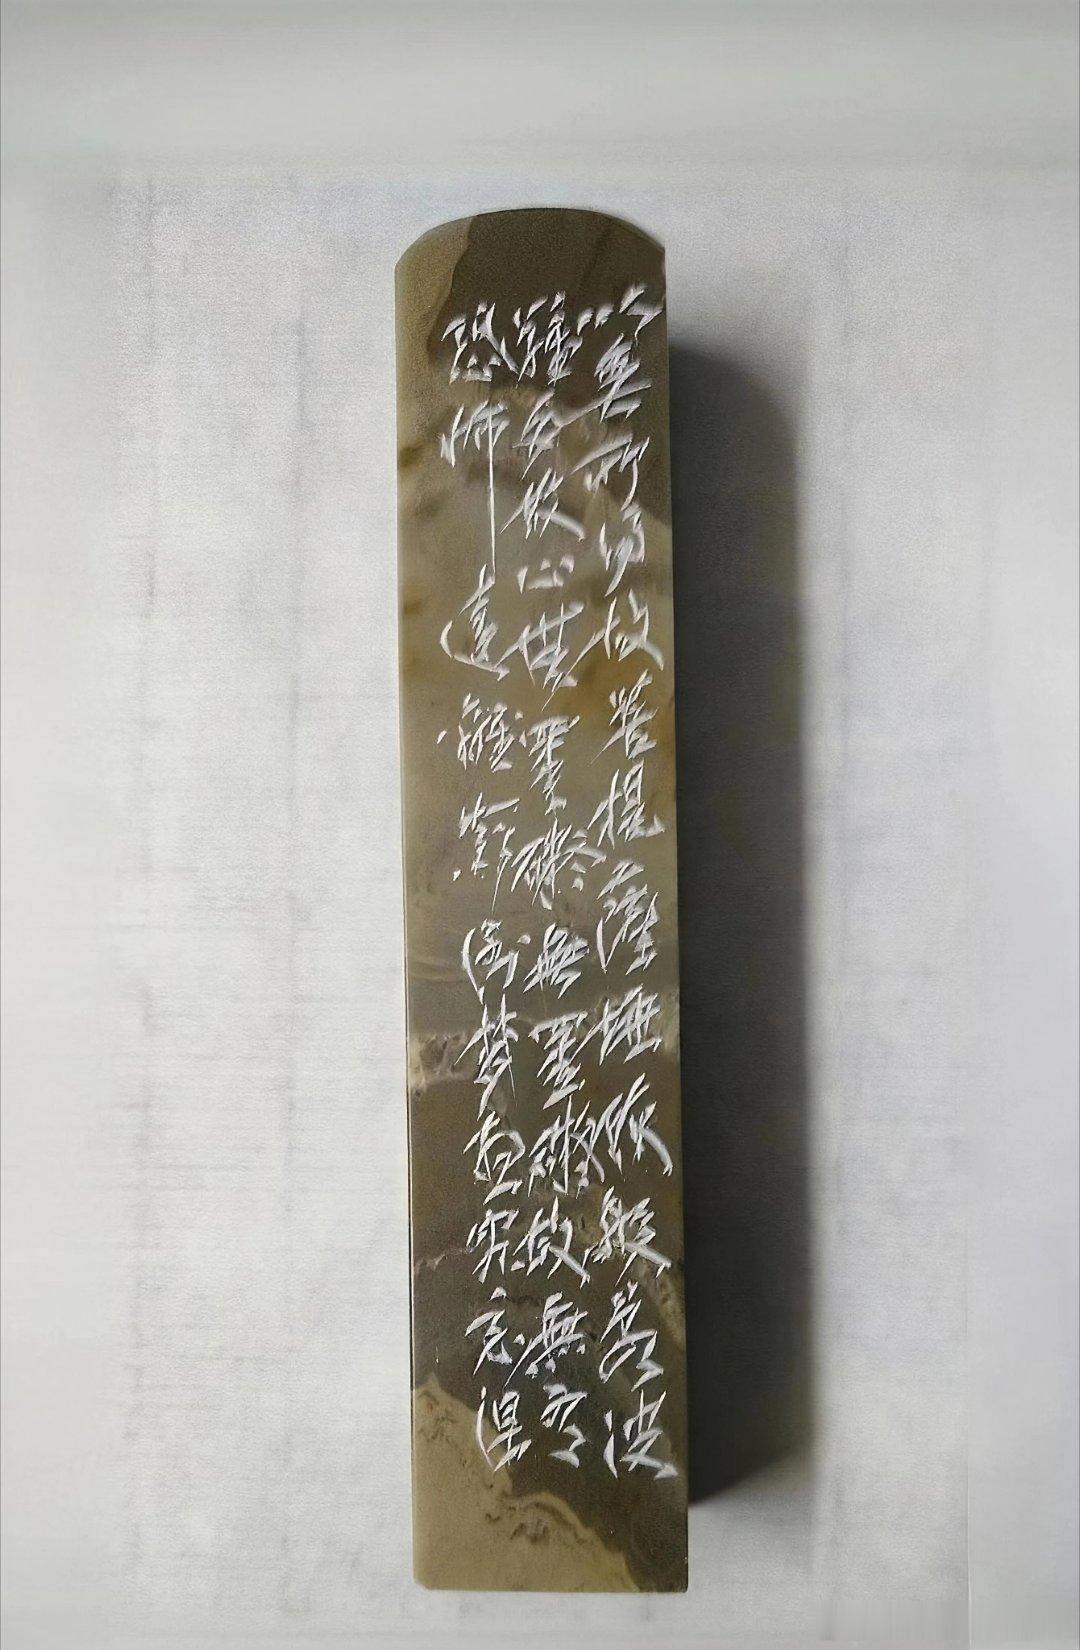 以無所得故菩提薩埵依般若波
羅多故心無罣礙無罣礙故無有
恐怖遠離顛倒夢想究竟涅